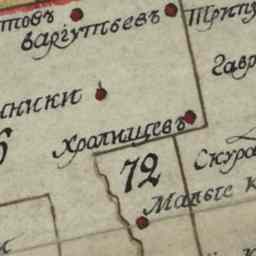 товъ
варгутьевъ
Трипу
Гавр
нники
Хролищевъ
72
Скура
Малые К